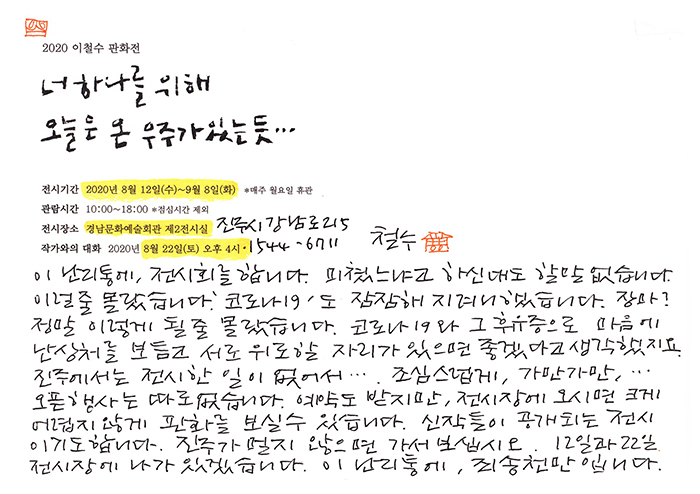 2020 이철수 판화전
너 하나를 위해
오늘은 온 우주가 있는 듯…
전시기간 2020년 8월 12일(수)~9월 8일(화) *매주 월요일 휴관
관람시간 10:00~18:00 *점심시간 제외
전시장소 경남문화예술회관 제2전시실 진주시 강남로 215
작가와의 대화 2020년 8월 22일(토) 오후 4시 · 1544-6711 철수
이 난리통에, 전시회를 합니다. 미쳤느냐고 하신대도 할말 없습니다.
이럴줄 몰랐습니다. '코로나19'도 잠잠해 지려니했습니다. 장마?
정말 이렇게 될 줄 몰랐습니다. 코로나 19와 그 후유증으로 마음에
난 상처를 보듬고 서로 위로할 자리가 있으면 좋겠다고 생각했지요.
진주에서는 전시한 일이 없어서…. 조심스럽게, 가만가만, …
오픈행사는 따로 없습니다. 예약도 받지만, 전시장에 오시면 크게
어렵지 않게 판화를 보실 수 있습니다. 신작들이 공개되는 전시
이기도 합니다. 진주가 멀지 않으면 가서 보십시오. 12일과 22일
전시장에 나가 있겠습니다. 이 난리통에, 죄송천만입니다.